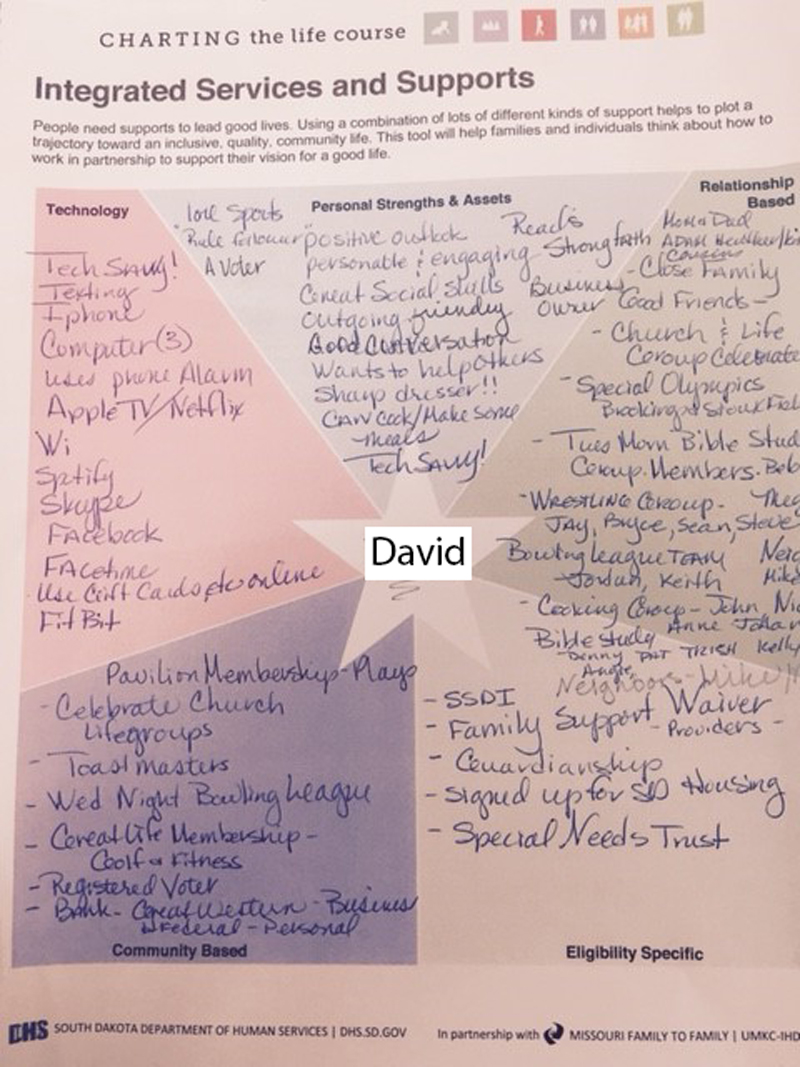 CHARTING the life course
Integrated Services and Supports
People need supports to lead good lives. Using a combination of lots of different kinds of support helps to plot a
trajectory toward an inclusive, quality, community life. This tool will help families and individuals think about how to
work in partnership to support their vision for a good life.
Technology
Tech Savvy!
Texting
Iphone
Computer (3)
Uses phone Alarm
Apple TV/Netflix
Wi
Sptify
Skype
Facebook
Facetime
Use Gift Cards etc online
Fit Bit
Personal Strengths & Assets
love Sports
"Rule follower"
A Voter
positive outlook
personable & engaging
Great Social skills
Outgoing friendly
Good Conversation
Wants to help others
Sharp dresser!!
Can cook/Make some
meals
Tech Savvy!
Reads
Strong faith
Business
Owner
Relationship
Based
Mom & Dad
Cousins
- Close Family
Good Friends -
- Church & Life
Group Celebrate
- Special Olympics
Brookings & Sioux Fal
- Tues Morn Bible Stud
Group. Members. Bob
- Wrestling Group -
Jay, Bryce, Sean, Steve
Bowling League Team
Jordan, Keith
Mike
- Cooking Group - John,
Anne
Bible study
Denny, Pat Trish Kelly
Angie,
Neighbors - Mike
David
Pavilion Membership - Plays
- Celebrate Church
Lifegroups
- Toastmasters
- Wed Night Bowling League
- Great Life Membership -
Golf & Fitness
- Registered Voter
- Bank - Great Western - Business
Federal - Personal
Community Based
- SSDI
- Family Support Waiver
- Providers -
- Guardianship
- Signed up for SD Housing
- Special Needs Trust
Eligibility Specific
DHS SOUTH DAKOTA DEPARTMENT OF HUMAN SERVICES | DHS.SD.GOV
In partnership with MISSOURI FAMILY TO FAMILY | UMKC-IHD